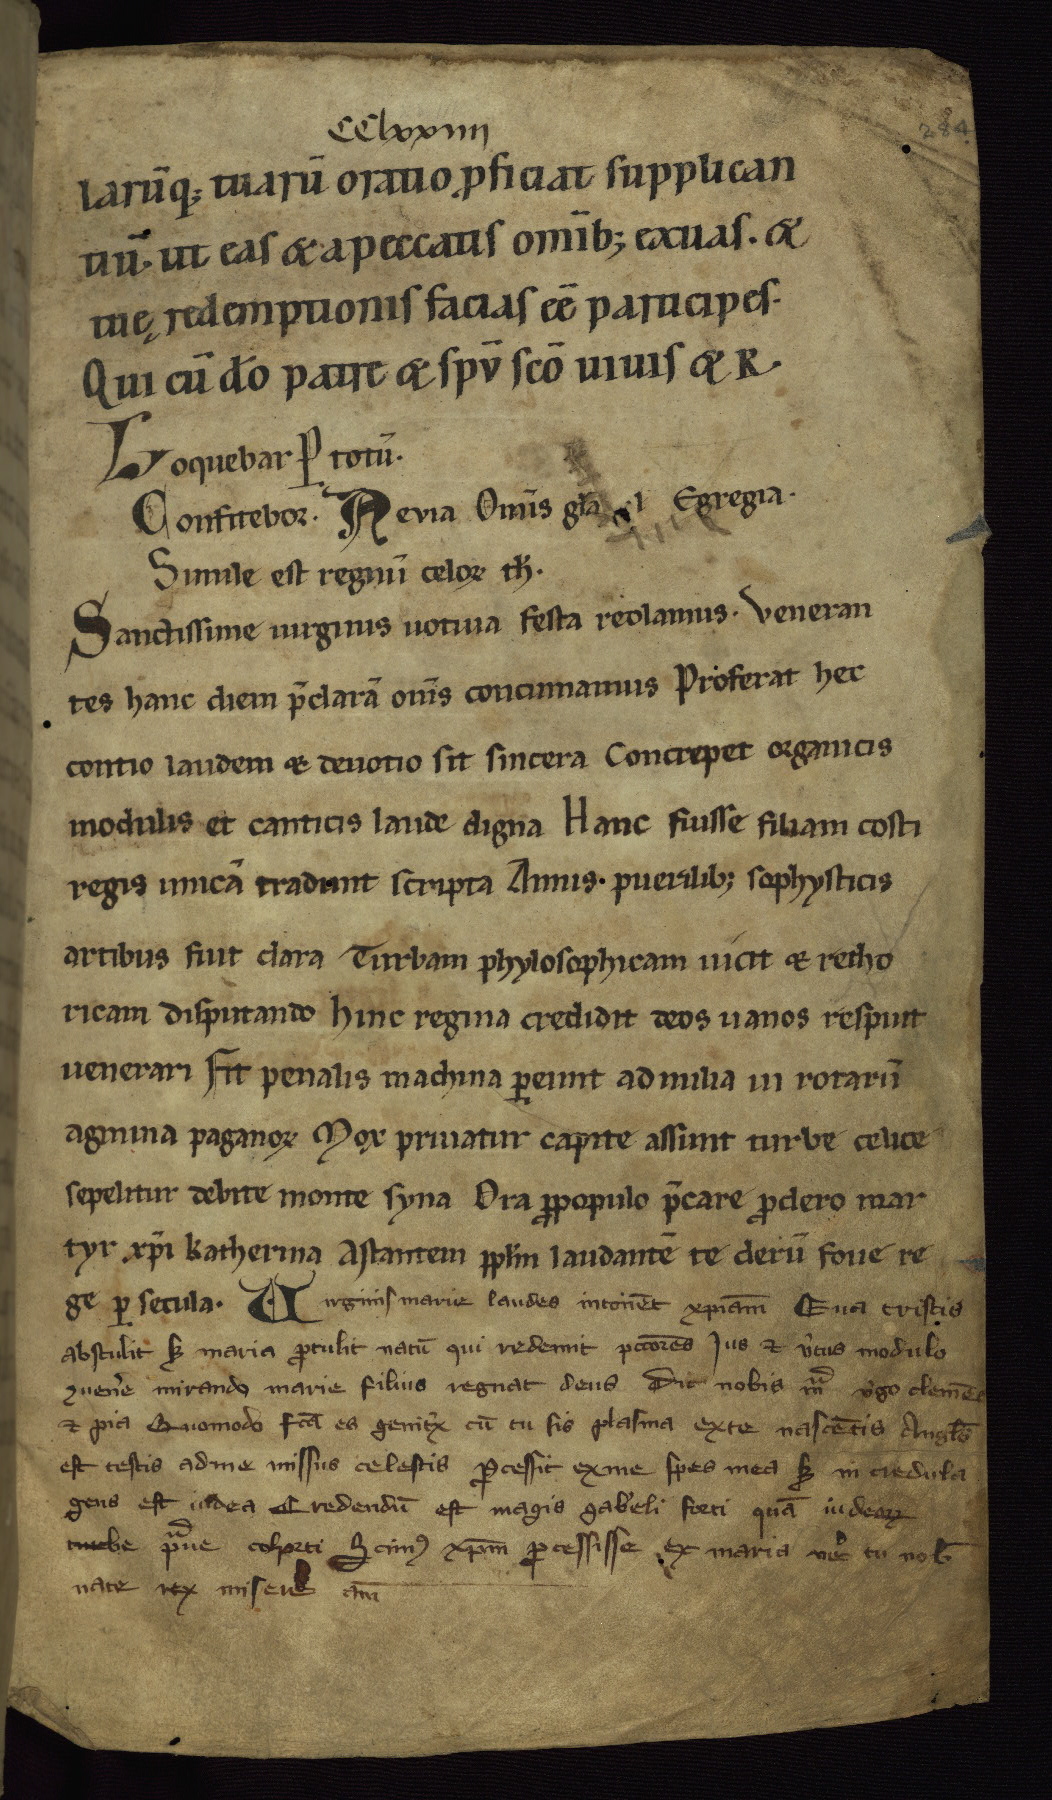 CClxxiiii
284
larūq; tuarū oratio ꝓficiat supplican
tiū. ut eas & a peccatis omīb; exuas. &
tuę redemptionis facias eē participes.
Qui cū dō patre & spū scō uiuis & R.
Loquebar ꝑ totū.
Confitebor. Aevia Omīs gła Egregia.
Simile est regnū celoꝝ th̄.
Sanctissime uirginis uotiua festa recolamus. Veneran
tes hanc diem p̄clarā om̄s concinamus Proferat hec
contio laudem & deuotio sit sincera Concrepet organicis
modulis et canticis laude digna Hanc fuisse filiam costi
regis unicā tradunt scripta Annis. puerilib; sophysticis
artibus fuit clara Turbam phylosophicam uicit & retho
ricam disputando hinc regina credidit deos uanos respuit
venerari Fit penalis machina ꝑeunt ad milia iii rotarū
agmina paganoꝝ Mox priuatur capite assunt turbe celice
sepelitur debite monte syna Ora ꝓ populo p̄care ꝓ clero mar
tyr xp̄i katherina Astantem pp̄lm laudantē te clerū foue re
ge ꝑ secula. Uirginis marie laudes intonēt xp̄iam̄ Eua tristis
abstulit sꝫ maria ꝓtulit natū qui redemit pctōres Jus & ûtus modulo
ꝯuen̄e mirando marie filius regnat deus Dic nobis m̄ v̂go clemēs
& pia Quomodo fcā es genitͥx cū tu sis plasma ex te nascētis Angl̄s
est testis ad me missus celestis Ꝓcessit ex me spes mea sꝫ in credula
gens est iudea Credendū est magis gab̄eli forti quā iudeoꝝ
turbe p̄ue cohorti Scim᷒ xp̄m ꝓcessisse ex maria ue᷑ tu nob̄
nate rex misere am̄